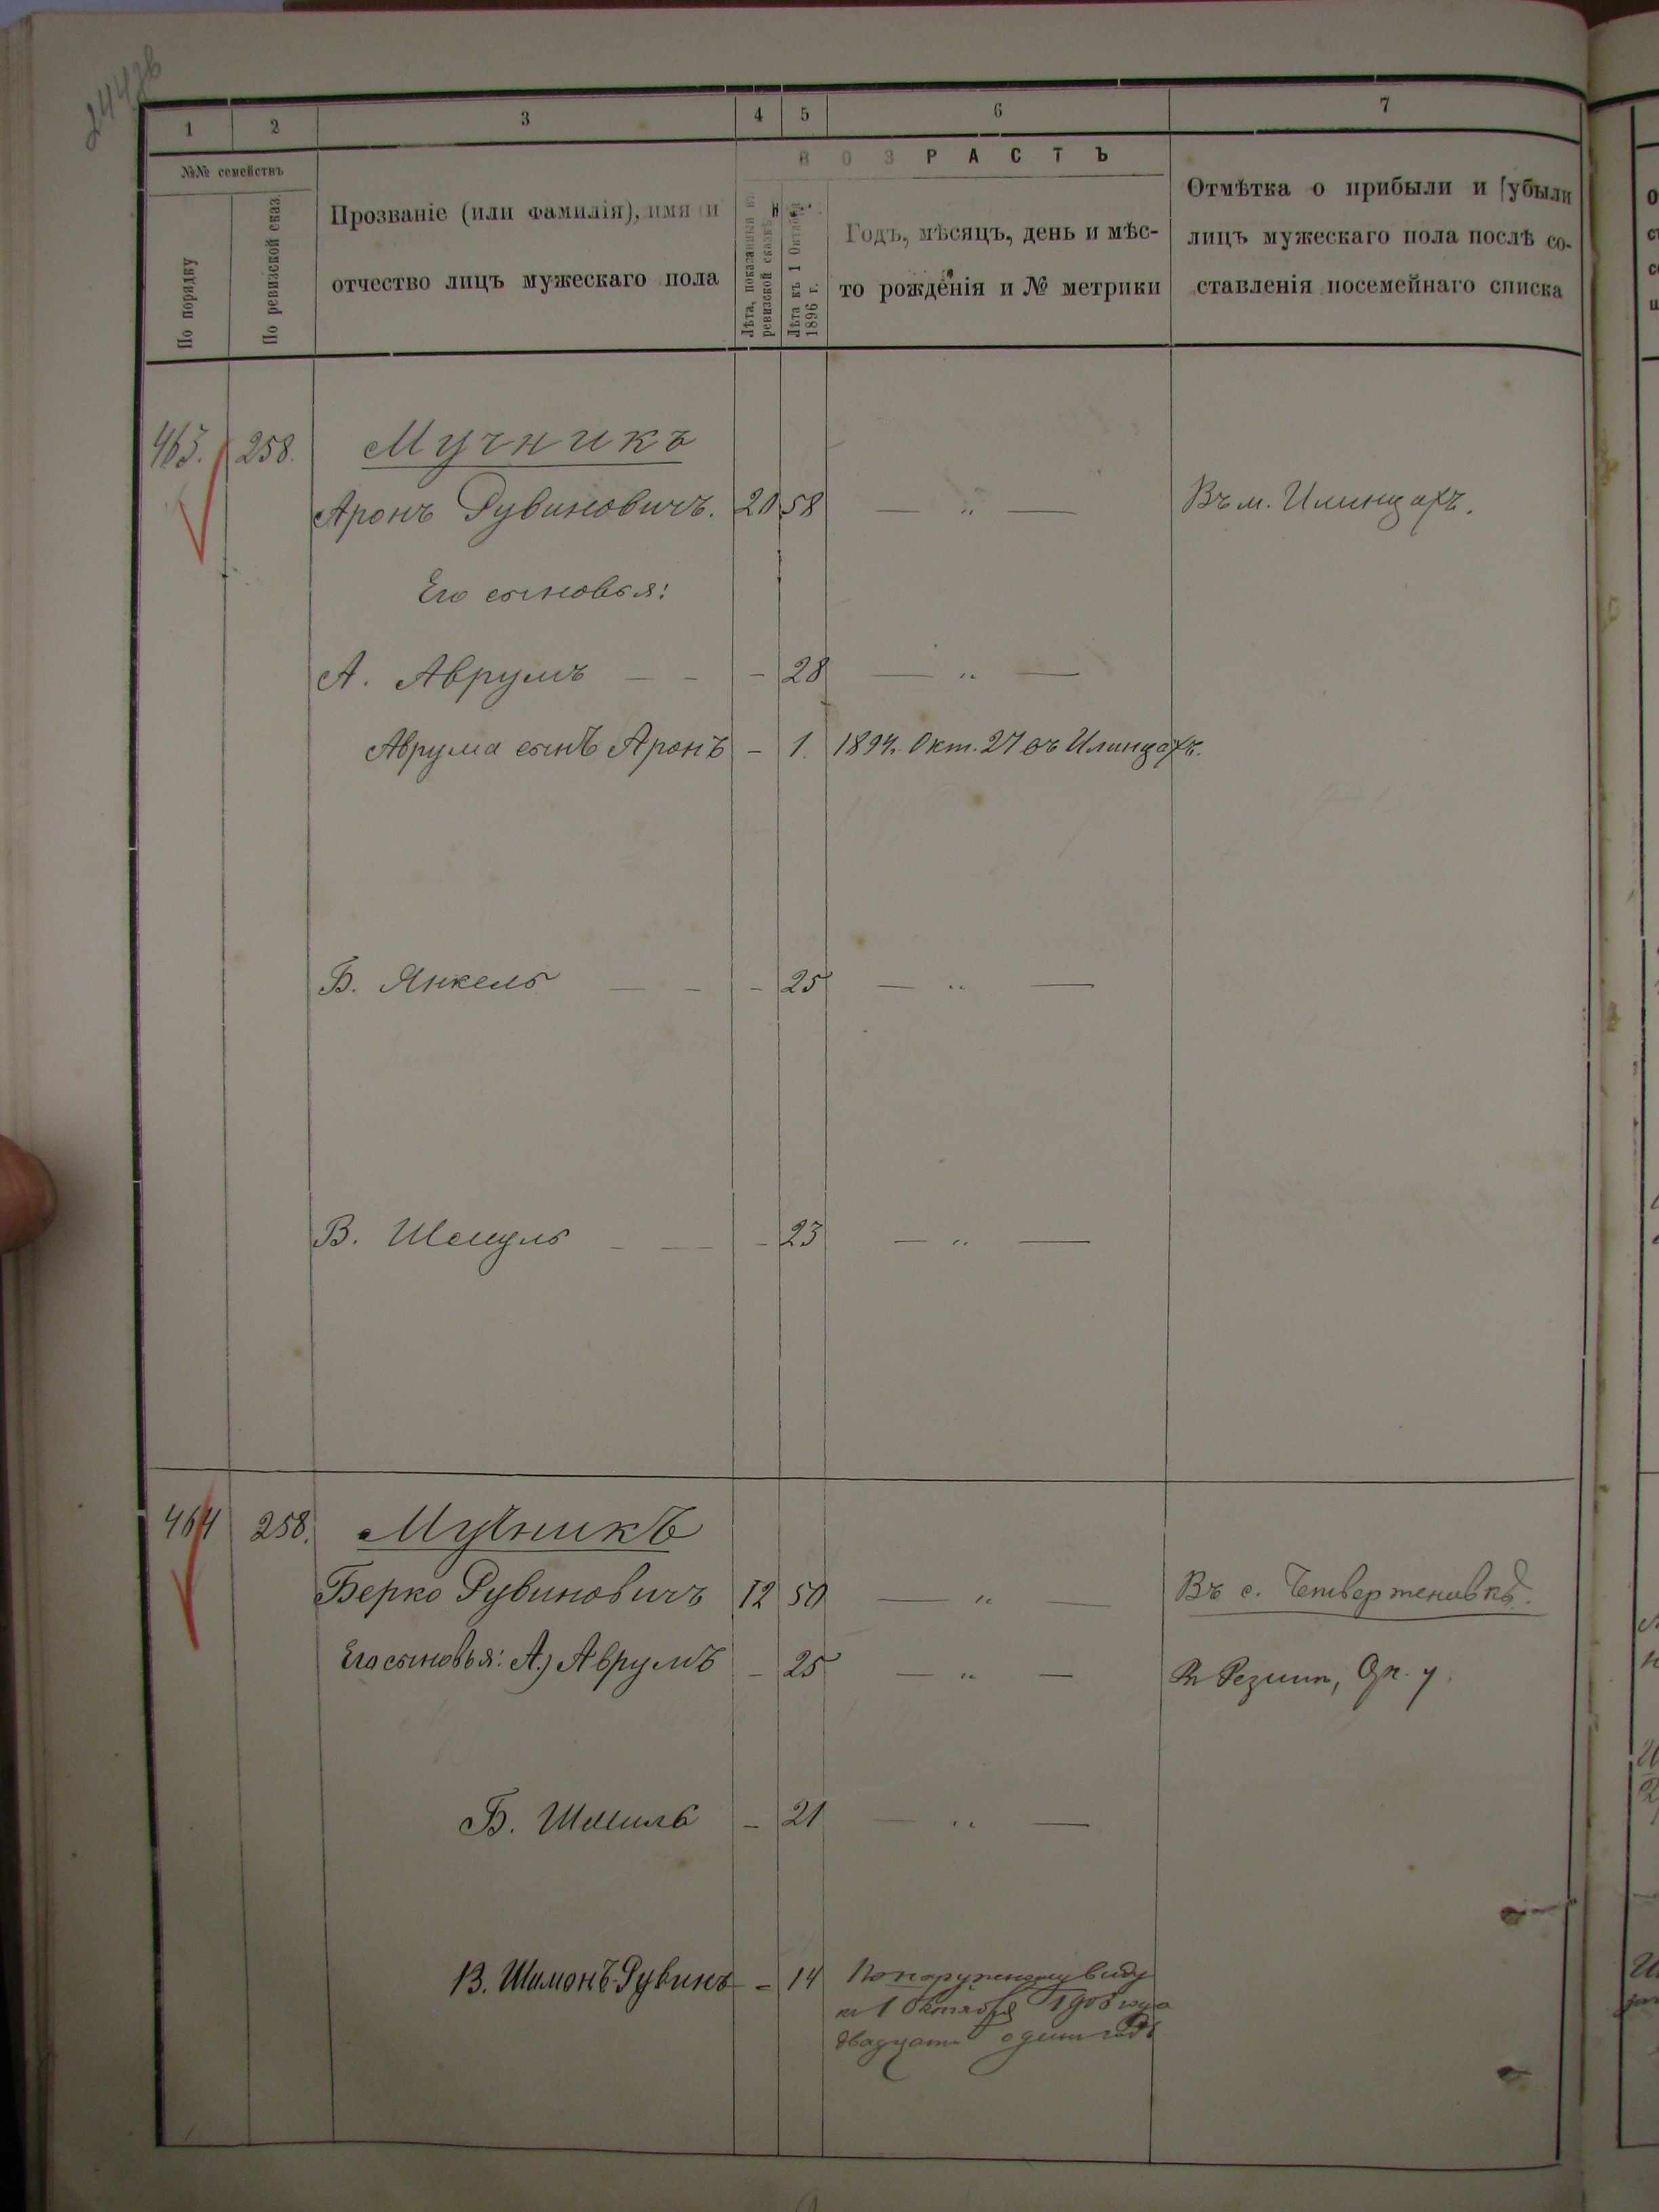 1 2 3 4 5 6 7
№№ семействъ
По порядку
По ревизской сказ.
Прозваніе (или фамилія), имя и
отчество лицъ мужескаго пола
ВОЗРАСТЪ
Лѣта, показанныя въ
ревизской сказкѣ
Лѣта къ 1 Октября
1896 г.
Годъ, мѣсяцъ, день и мѣс-
то рожденія и № метрики
Отмѣтка о прибыли и убыли
лицъ мужескаго пола послѣ со-
ставленія посемейнаго списка
463. 258. Мучникъ
Аронъ Рувиновичъ. 20 58 — „ — Въ м. Илинцахъ.
Его сыновья:
А. Аврумъ — - - 28 — „ —
Аврума сынъ Аронъ - 1. 1894. Окт. 27 въ Илинцахъ.
Б. Янкель — - - 25 — „ —
В. Шмуль - — - 23 — „ —
464 258. Мучникъ
Берко Рувиновичъ 12 50 — „ — Въ с. Четвертеновкѣ.
Его сыновья: А.) Аврумъ - 25 — „ —
Б. Шмиль - 21 — „ —
В. Шимонъ-Рувинъ - 14 По наружному виду
къ 1 Октября 1903 года
двадцать одинъ годъ